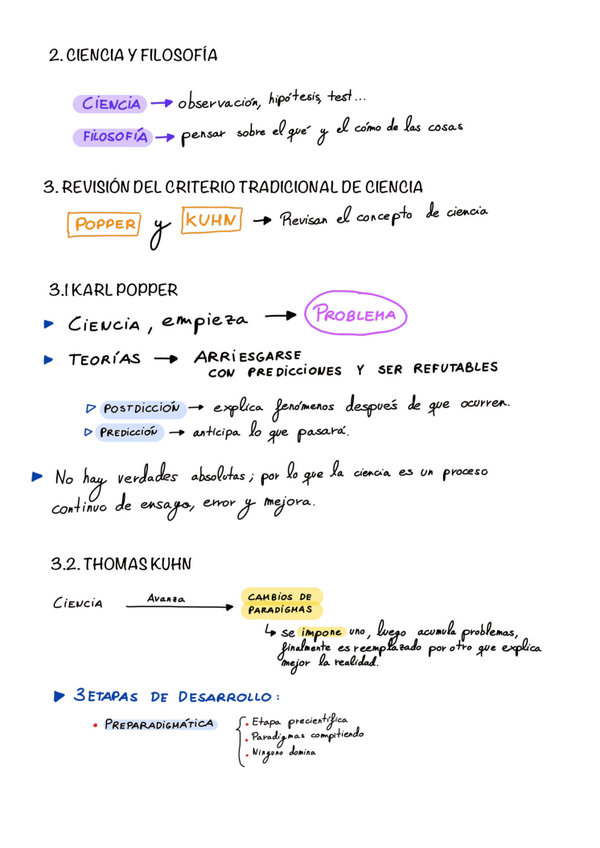 2. CIENCIA Y FILOSOFÍA
CIENCIA → observación, hipótesis, test...
FILOSOFÍA → pensar sobre el qué y el cómo de las cosas
3. REVISIÓN DEL CRITERIO TRADICIONAL DE CIENCIA
POPPER y KUHN → Revisan el concepto de ciencia
3.1 KARL POPPER
▶ CIENCIA, empieza → PROBLEMA
▶ TEORÍAS → ARRIESGARSE
CON PREDICCIONES Y SER REFUTABLES
▷ POSTDICCIÓN → explica fenómenos después de que ocurren.
▷ PREDICCIÓN → anticipa lo que pasará.
▶ No hay verdades absolutas; por lo que la ciencia es un proceso
continuo de ensayo, error y mejora.
3.2. THOMAS KUHN
CIENCIA Avanza → CAMBIOS DE
PARADIGMAS
↳ se impone uno, luego acumula problemas,
finalmente es reemplazado por otro que explica
mejor la realidad.
▶ 3 ETAPAS DE DESARROLLO:
• PREPARADIGMÁTICA
• Etapa precientífica
• Paradigmas compitiendo
• Ninguno domina